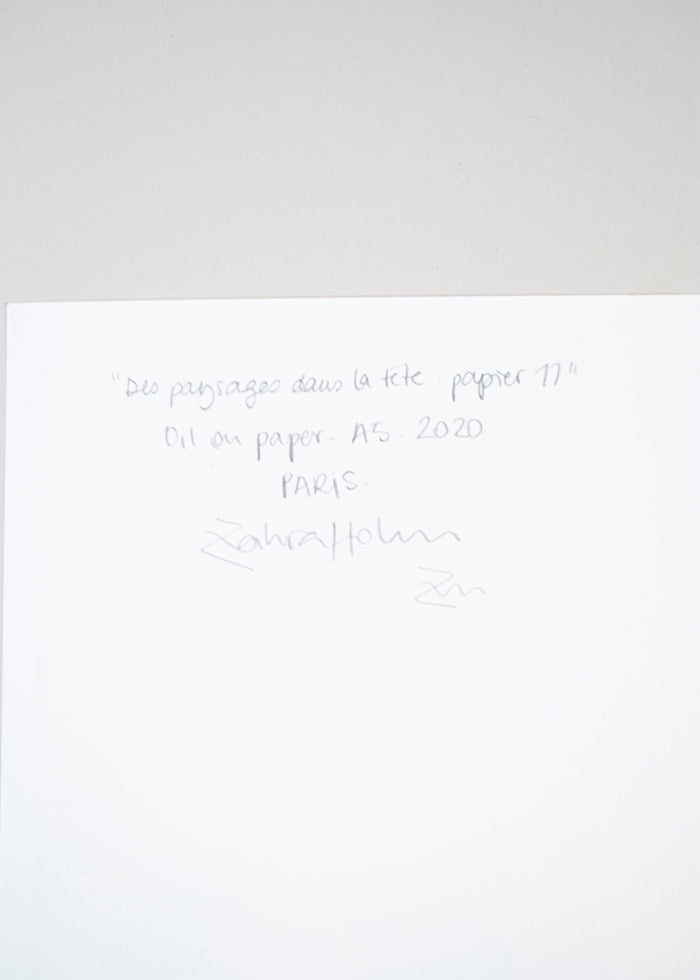 "Des paysages dans la tête - papier 17"
Oil on paper - A5 - 2020
PARiS.
Zahra Holm